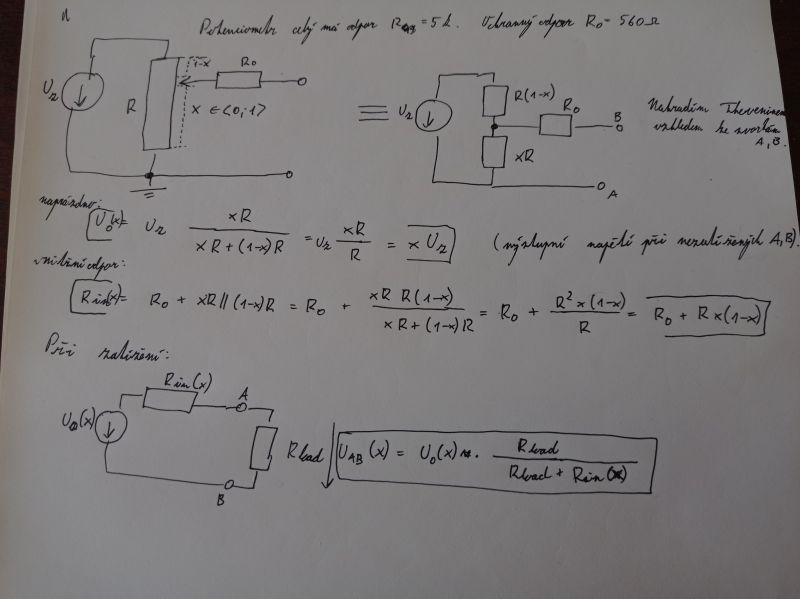 Potenciometr celý má odpor R_AB = 5k. Ochranný odpor R₀ = 560Ω
U₂
R
1-x
R₀
x ∈ <0;1>
≡
U₂
R(1-x)
xR
R₀
B
A
Nahradím Theveninem
vzhledem ke svorkám
A, B.
naprázdno:
U₀(x) = U₂ xR / (xR + (1-x)R) = U₂ xR / R = x U₂ (výstupní napětí při nezatížených A, B).
vnitřní odpor:
Rin(x) = R₀ + xR || (1-x)R = R₀ + xR R(1-x) / (xR + (1-x)R) = R₀ + R² x(1-x) / R = R₀ + R x(1-x)
Při zatížení:
U₀(x)
Rin(x)
A
B
Rload
U_AB(x) = U₀(x) · Rload / (Rload + Rin(x))